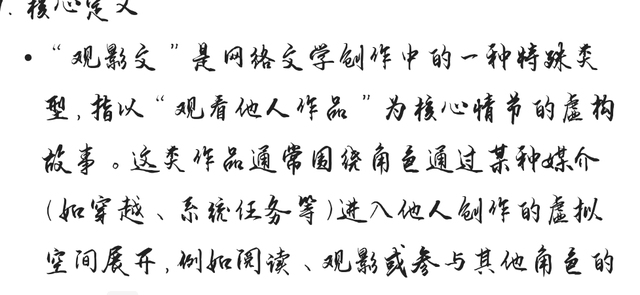 1. 核心定义
• “观影文”是网络文学创作中的一种特殊类
型,指以“观看他人作品”为核心情节的虚构
故事。这类作品通常围绕角色通过某种媒介
(如穿越、系统任务等)进入他人创作的虚拟
空间展开,例如阅读、观影或参与其他角色的